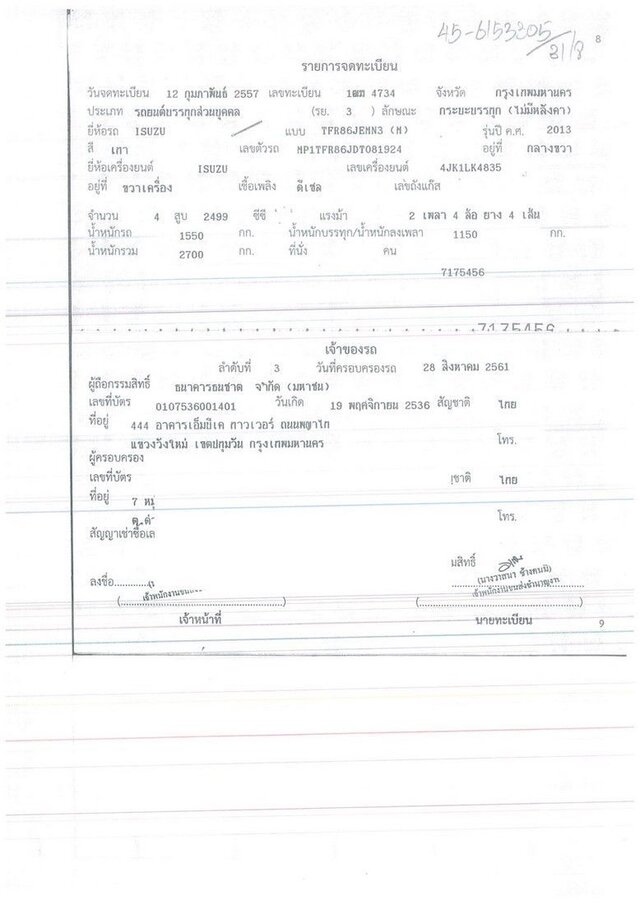 45-6153305
31/8
8
รายการจดทะเบียน
วันจดทะเบียน 12 กุมภาพันธ์ 2557 เลขทะเบียน 4734 จังหวัด กรุงเทพมหานคร
ประเภท รถยนต์บรรทุกส่วนบุคคล (รย. 3 ) ลักษณะ กระบะบรรทุก (ไม่มีหลังคา)
ยี่ห้อรถ ISUZU แบบ TFR86JEMN3 (M) รุ่นปี ค.ศ. 2013
สี เทา เลขตัวรถ MP1TFR86JDT081924 อยู่ที่ กลางขวา
ยี่ห้อเครื่องยนต์ ISUZU เลขเครื่องยนต์ 4JK1LK4835
อยู่ที่ ขวาเครื่อง เชื้อเพลิง ดีเซล เลขถังแก๊ส
จำนวน 4 สูบ 2499 ซีซี แรงม้า 2 เพลา 4 ล้อ ยาง 4 เส้น
น้ำหนักรถ 1550 กก. น้ำหนักบรรทุก/น้ำหนักลงเพลา 1150 กก.
น้ำหนักรวม 2700 กก. ที่นั่ง คน
7175456
7175456
เจ้าของรถ
ลำดับที่ 3 วันที่ครอบครองรถ 28 สิงหาคม 2561
ผู้ถือกรรมสิทธิ์ ธนาคารธนชาต จำกัด (มหาชน)
เลขที่บัตร 0107536001401 วันเกิด 19 พฤศจิกายน 2536 สัญชาติ ไทย
ที่อยู่ 444 อาคารเอ็มบีเค ทาวเวอร์ ถนนพญาไท
แขวงวังใหม่ เขตปทุมวัน กรุงเทพมหานคร โทร.
ผู้ครอบครอง
เลขที่บัตร ชาติ ไทย
ที่อยู่ 7 หมู่
ต.ด่ โทร.
สัญญาเช่าซื้อเล
มสิทธิ์
ลงชื่อ
เจ้าพนักงานขน
(นางวาสนา ช้างคนมี)
เจ้าพนักงานขนส่งชำนาญงาน
เจ้าหน้าที่ นายทะเบียน
9